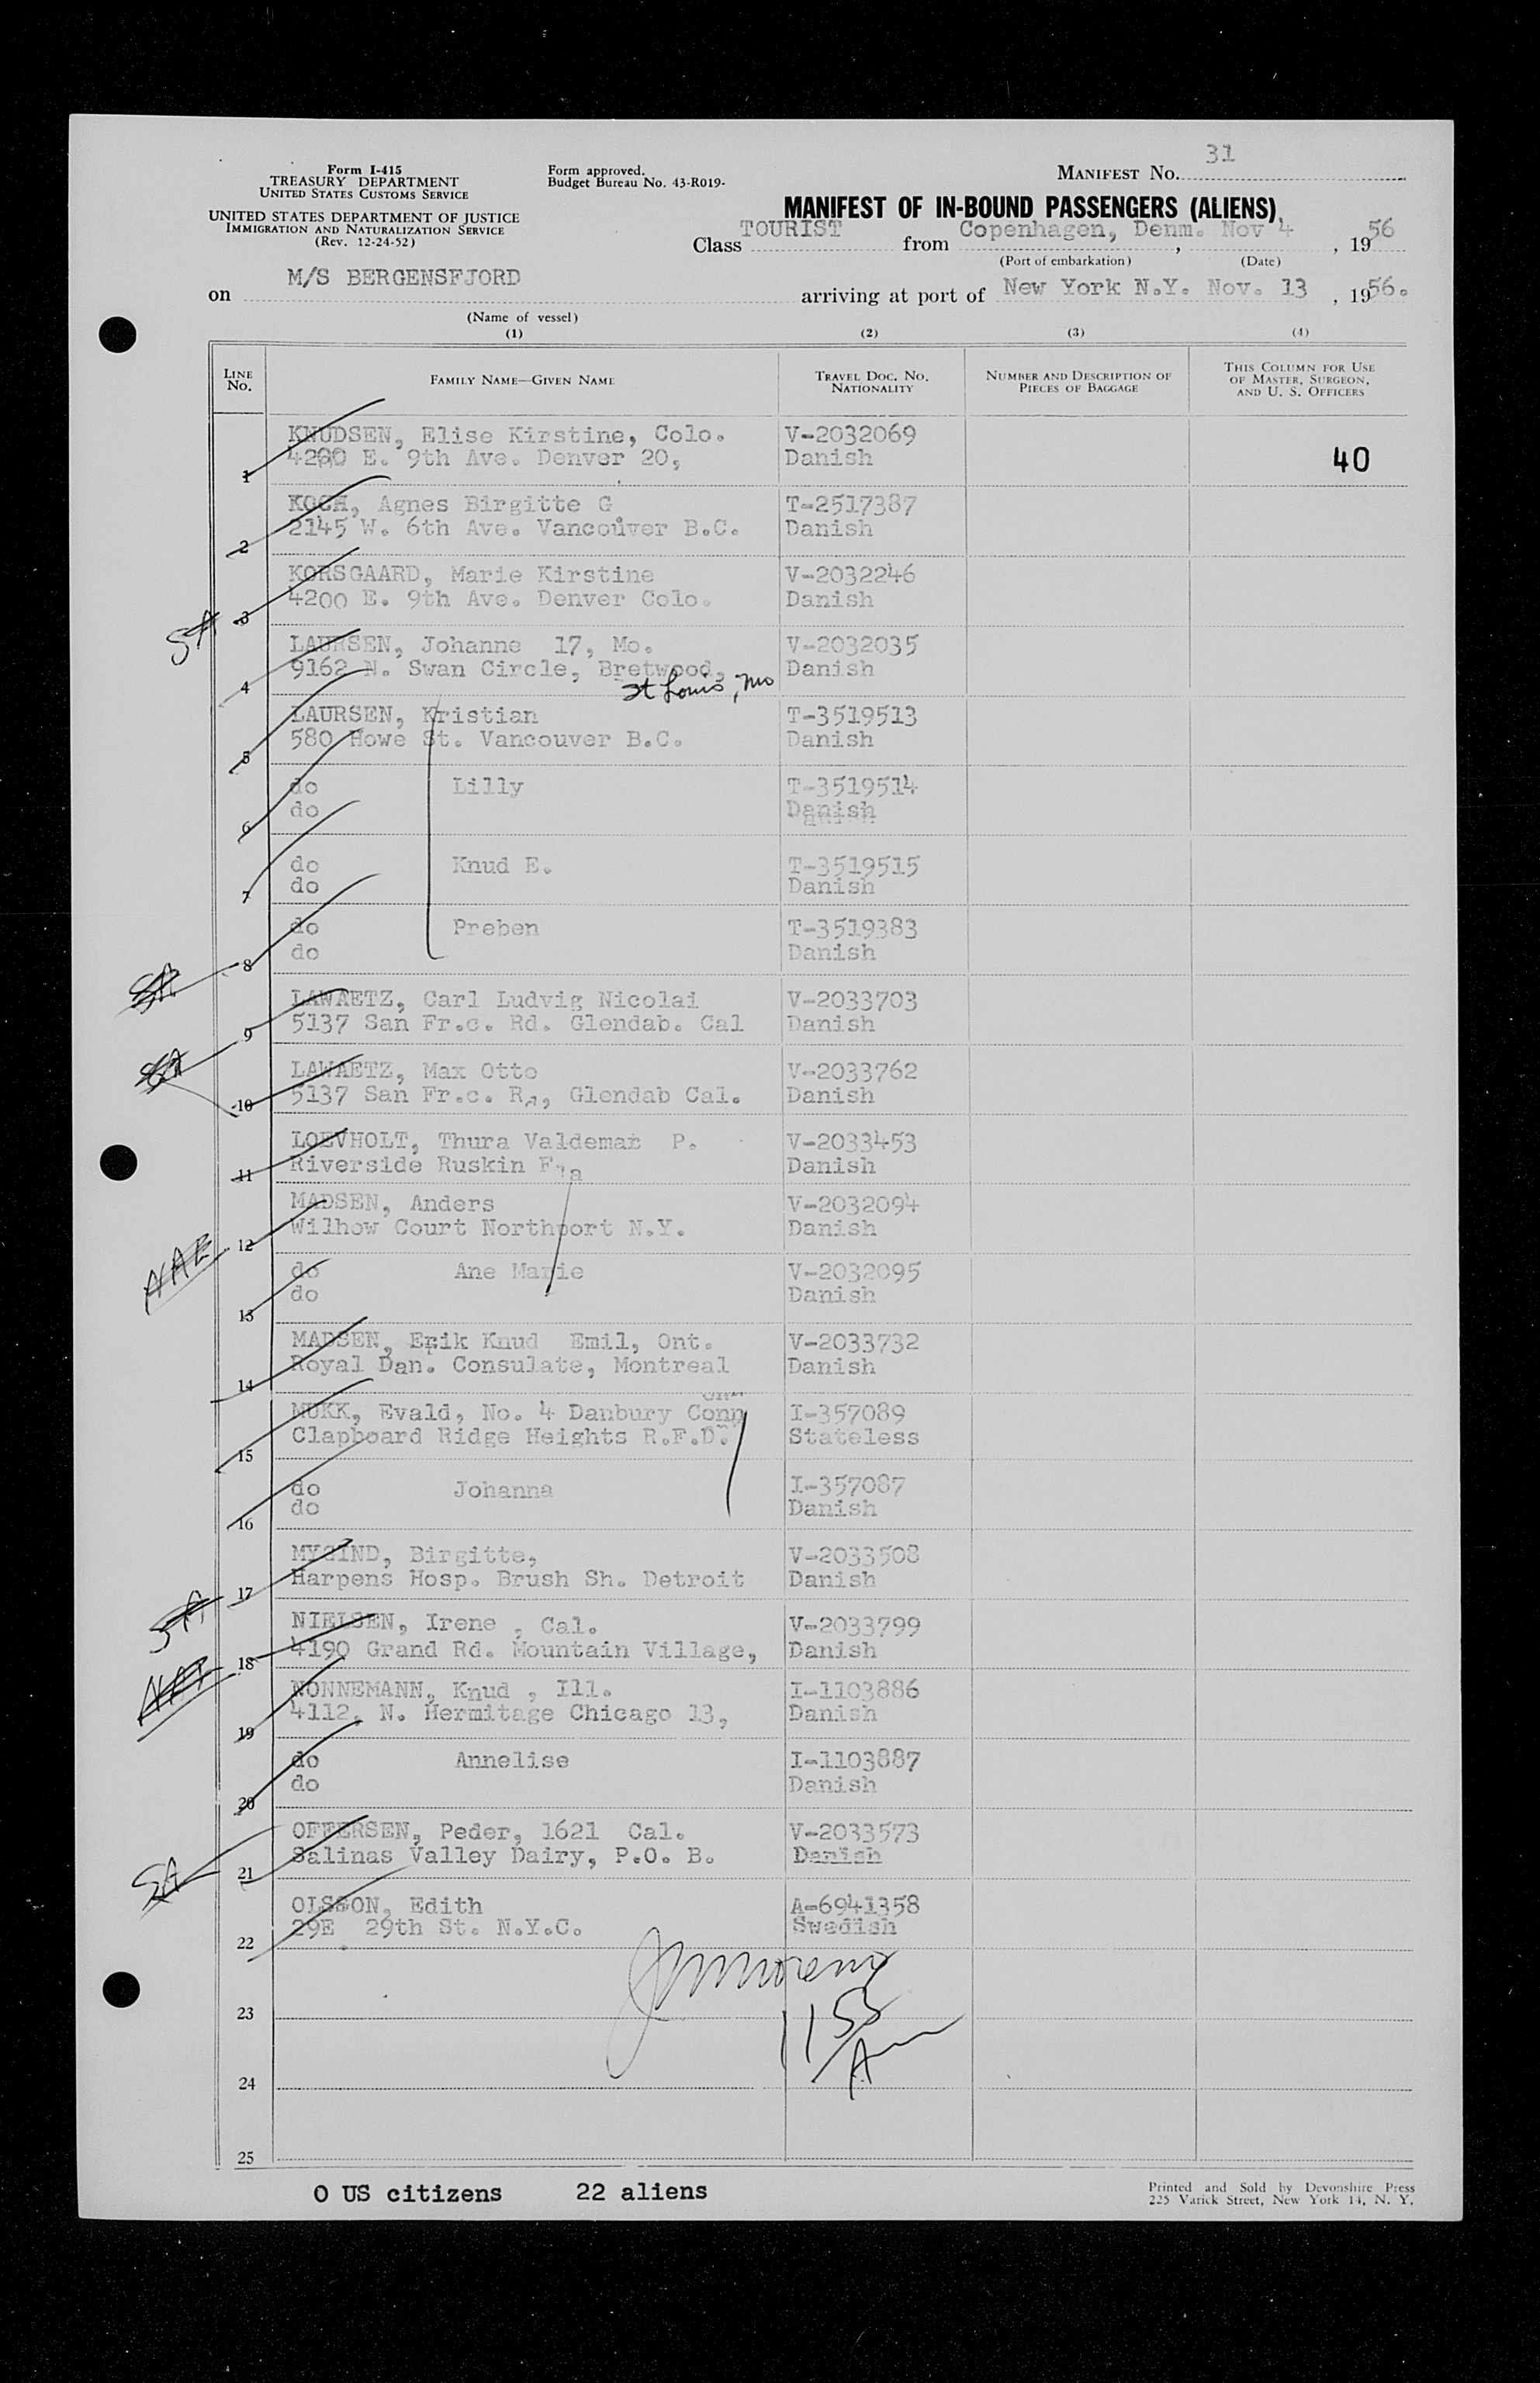 31
Form I-415
TREASURY DEPARTMENT
UNITED STATES CUSTOMS SERVICE
Form approved.
Budget Bureau No. 43-R019-
MANIFEST No.
UNITED STATES DEPARTMENT OF JUSTICE
IMMIGRATION AND NATURALIZATION SERVICE
(Rev. 12-24-52)
MANIFEST OF IN-BOUND PASSENGERS (ALIENS)
Class TOURIST from Copenhagen, Denm. Nov 4, 1956
(Port of embarkation) (Date)
on M/S BERGENSFJORD arriving at port of New York N.Y. Nov. 13, 1956.
(Name of vessel)
(1) (2) (3) (4)
LINE No. FAMILY NAME—GIVEN NAME TRAVEL DOC. NO. NATIONALITY NUMBER AND DESCRIPTION OF PIECES OF BAGGAGE THIS COLUMN FOR USE OF MASTER, SURGEON, AND U. S. OFFICERS
KNUDSEN, Elise Kirstine, Colo. V-2032069
1 4200 E. 9th Ave. Denver 20, Danish 40
KOCH, Agnes Birgitte G T-2517387
2 2145 W. 6th Ave. Vancouver B.C. Danish
KORSGAARD, Marie Kirstine V-2032246
3 4200 E. 9th Ave. Denver Colo. Danish
SA
LAURSEN, Johanne 17, Mo. V-2032035
4 9162 N. Swan Circle, Bretwood, Danish
St Louis, Mo
LAURSEN, Kristian T-3519513
5 580 Howe St. Vancouver B.C. Danish
do Lilly T-3519514
6 do Danish
do Knud E. T-3519515
7 do Danish
do Preben T-3519383
8 do Danish
SA
LAWAETZ, Carl Ludvig Nicolai V-2033703
9 5137 San Fr.c. Rd. Glendab. Cal Danish
SA
LAWAETZ, Max Otto V-2033762
10 5137 San Fr.c. Rd, Glendab Cal. Danish
LOEVHOLT, Thura Valdemar P. V-2033453
11 Riverside Ruskin Danish
MADSEN, Anders V-2032094
12 Wilhow Court Northport N.Y. Danish
do Ane Marie V-2032095
13 do Danish
MADSEN, Erik Knud Emil, Ont. V-2033732
14 Royal Dan. Consulate, Montreal Danish
MUKK, Evald, No. 4 Danbury Conn I-357089
15 Clapboard Ridge Heights R.F.D. Stateless
do Johanna I-357087
16 do Danish
MYGIND, Birgitte, V-2033508
17 Harpens Hosp. Brush Sh. Detroit Danish
SA
NIELSEN, Irene , Cal. V-2033799
18 4190 Grand Rd. Mountain Village, Danish
NONNEMANN, Knud , Ill. I-1103886
19 4112, N. Hermitage Chicago 13, Danish
do Annelise I-1103887
20 do Danish
OFFERSEN, Peder, 1621 Cal. V-2033573
21 Salinas Valley Dairy, P.O. B. Danish
SA
OLSSON, Edith A-6941358
22 29E 29th St. N.Y.C. Swedish
23
1153
24
25
0 US citizens 22 aliens
Printed and Sold by Devonshire Press
225 Varick Street, New York 14, N. Y.